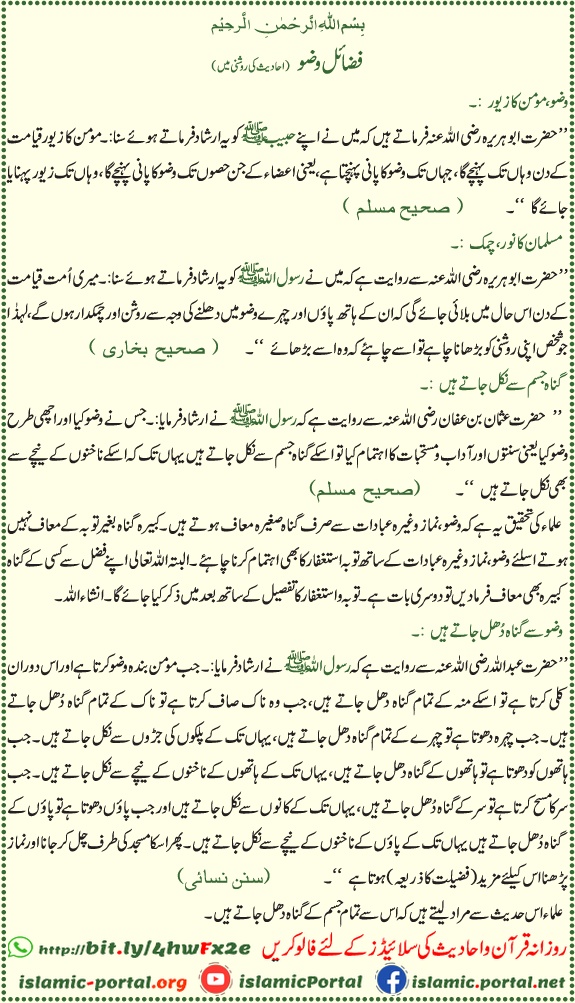 بِسْمِ اللهِ الرَّحْمٰنِ الرَّحِيْمِ
فضائلِ وضو (احادیث کی روشنی میں)
وضو، مومن کا زیور :۔
’’حضرت ابوہریرہ رضی اللہ عنہ فرماتے ہیں کہ میں نے اپنے حبیب ﷺ کو یہ ارشاد فرماتے ہوئے سنا:۔ مومن کا زیور قیامت
کے دن وہاں تک پہنچے گا، جہاں تک وضو کا پانی پہنچتا ہے، یعنی اعضاء کے جن حصوں تک وضو کا پانی پہنچے گا، وہاں تک زیور پہنایا
جائے گا ‘‘۔ ( صحیح مسلم )
مسلمان کا نور، چمک :۔
’’حضرت ابوہریرہ رضی اللہ عنہ سے روایت ہے کہ میں نے رسول اللہ ﷺ کو یہ ارشاد فرماتے ہوئے سنا:۔ میری اُمت قیامت
کے دن اس حال میں بلائی جائے گی کہ ان کے ہاتھ پاؤں اور چہرے وضو میں دھلنے کی وجہ سے روشن اور چمکدار ہوں گے، لہذا
جو شخص اپنی روشنی کو بڑھانا چاہے تو اسے چاہئے کہ وہ اسے بڑھائے ‘‘۔ ( صحیح بخاری )
گناہ جسم سے نکل جاتے ہیں :۔
’’ حضرت عثمان بن عفان رضی اللہ عنہ سے روایت ہے کہ رسول اللہ ﷺ نے ارشاد فرمایا:۔ جس نے وضو کیا اور اچھی طرح
وضو کیا یعنی سنتوں اور آداب و مستحبات کا اہتمام کیا تو اسکے گناہ جسم سے نکل جاتے ہیں یہاں تک کہ اسکے ناخنوں کے نیچے سے
بھی نکل جاتے ہیں ‘‘۔ (صحیح مسلم)
علماء کی تحقیق یہ ہے کہ وضو، نماز وغیرہ عبادات سے صرف گناہ صغیرہ معاف ہوتے ہیں۔ کبیرہ گناہ بغیر توبہ کے معاف نہیں
ہوتے اسلئے وضو، نماز وغیرہ عبادات کے ساتھ توبہ استغفار کا بھی اہتمام کرنا چاہئے۔ البتہ اللہ تعالی اپنے فضل سے کسی کے گناہ
کبیرہ بھی معاف فرمادیں تو دوسری بات ہے۔ توبہ و استغفار کا تفصیل کے ساتھ بعد میں ذکر کیا جائے گا۔ انشاء اللہ۔
وضو سے گناہ دُھل جاتے ہیں :۔
’’حضرت عبداللہ رضی اللہ عنہ سے روایت ہے کہ رسول اللہ ﷺ نے ارشاد فرمایا:۔ جب مومن بندہ وضو کرتا ہے اور اس دوران
کلی کرتا ہے تو اسکے منہ کے تمام گناہ دھل جاتے ہیں، جب وہ ناک صاف کرتا ہے تو ناک کے تمام گناہ دُھل جاتے
ہیں۔ جب چہرہ دھوتا ہے تو چہرے کے تمام گناہ دھل جاتے ہیں، یہاں تک کے پلکوں کی جڑوں سے نکل جاتے ہیں۔ جب
ہاتھوں کو دھوتا ہے تو ہاتھوں کے گناہ دُھل جاتے ہیں، یہاں تک کے ہاتھوں کے ناخنوں کے نیچے سے نکل جاتے ہیں۔ جب
سر کا مسح کرتا ہے تو سر کے گناہ دُھل جاتے ہیں، یہاں تک کے کانوں سے نکل جاتے ہیں اور جب پاؤں دھوتا ہے تو پاؤں کے
گناہ دُھل جاتے ہیں یہاں تک کے پاؤں کے ناخنوں کے نیچے سے نکل جاتے ہیں۔ پھر اسکا مسجد کی طرف چل کر جانا اور نماز
پڑھنا اس کیلئے مزید (فضیلت کا ذریعہ) ہوتا ہے ‘‘۔ (سنن نسائی)
علماء اس حدیث سے مراد لیتے ہیں کہ اس سے تمام جسم کے گناہ دھل جاتے ہیں۔
روزانہ قرآن و احادیث کی سلائیڈز کے لئے فالو کریں http://bit.ly/4hwFx2e
islamic-portal.org islamicPortal islamic.portal.net